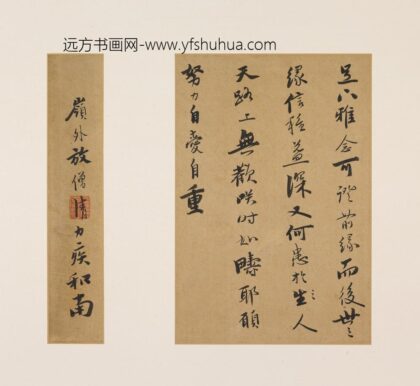 远方书画网-www.yfshuhua.com
足下雅念可證前緣而後世之
緣信種益深又何患於生〻人
天路上無歡咲時如疇耶願
努力自愛自重
嶺外放僧清力疾和南